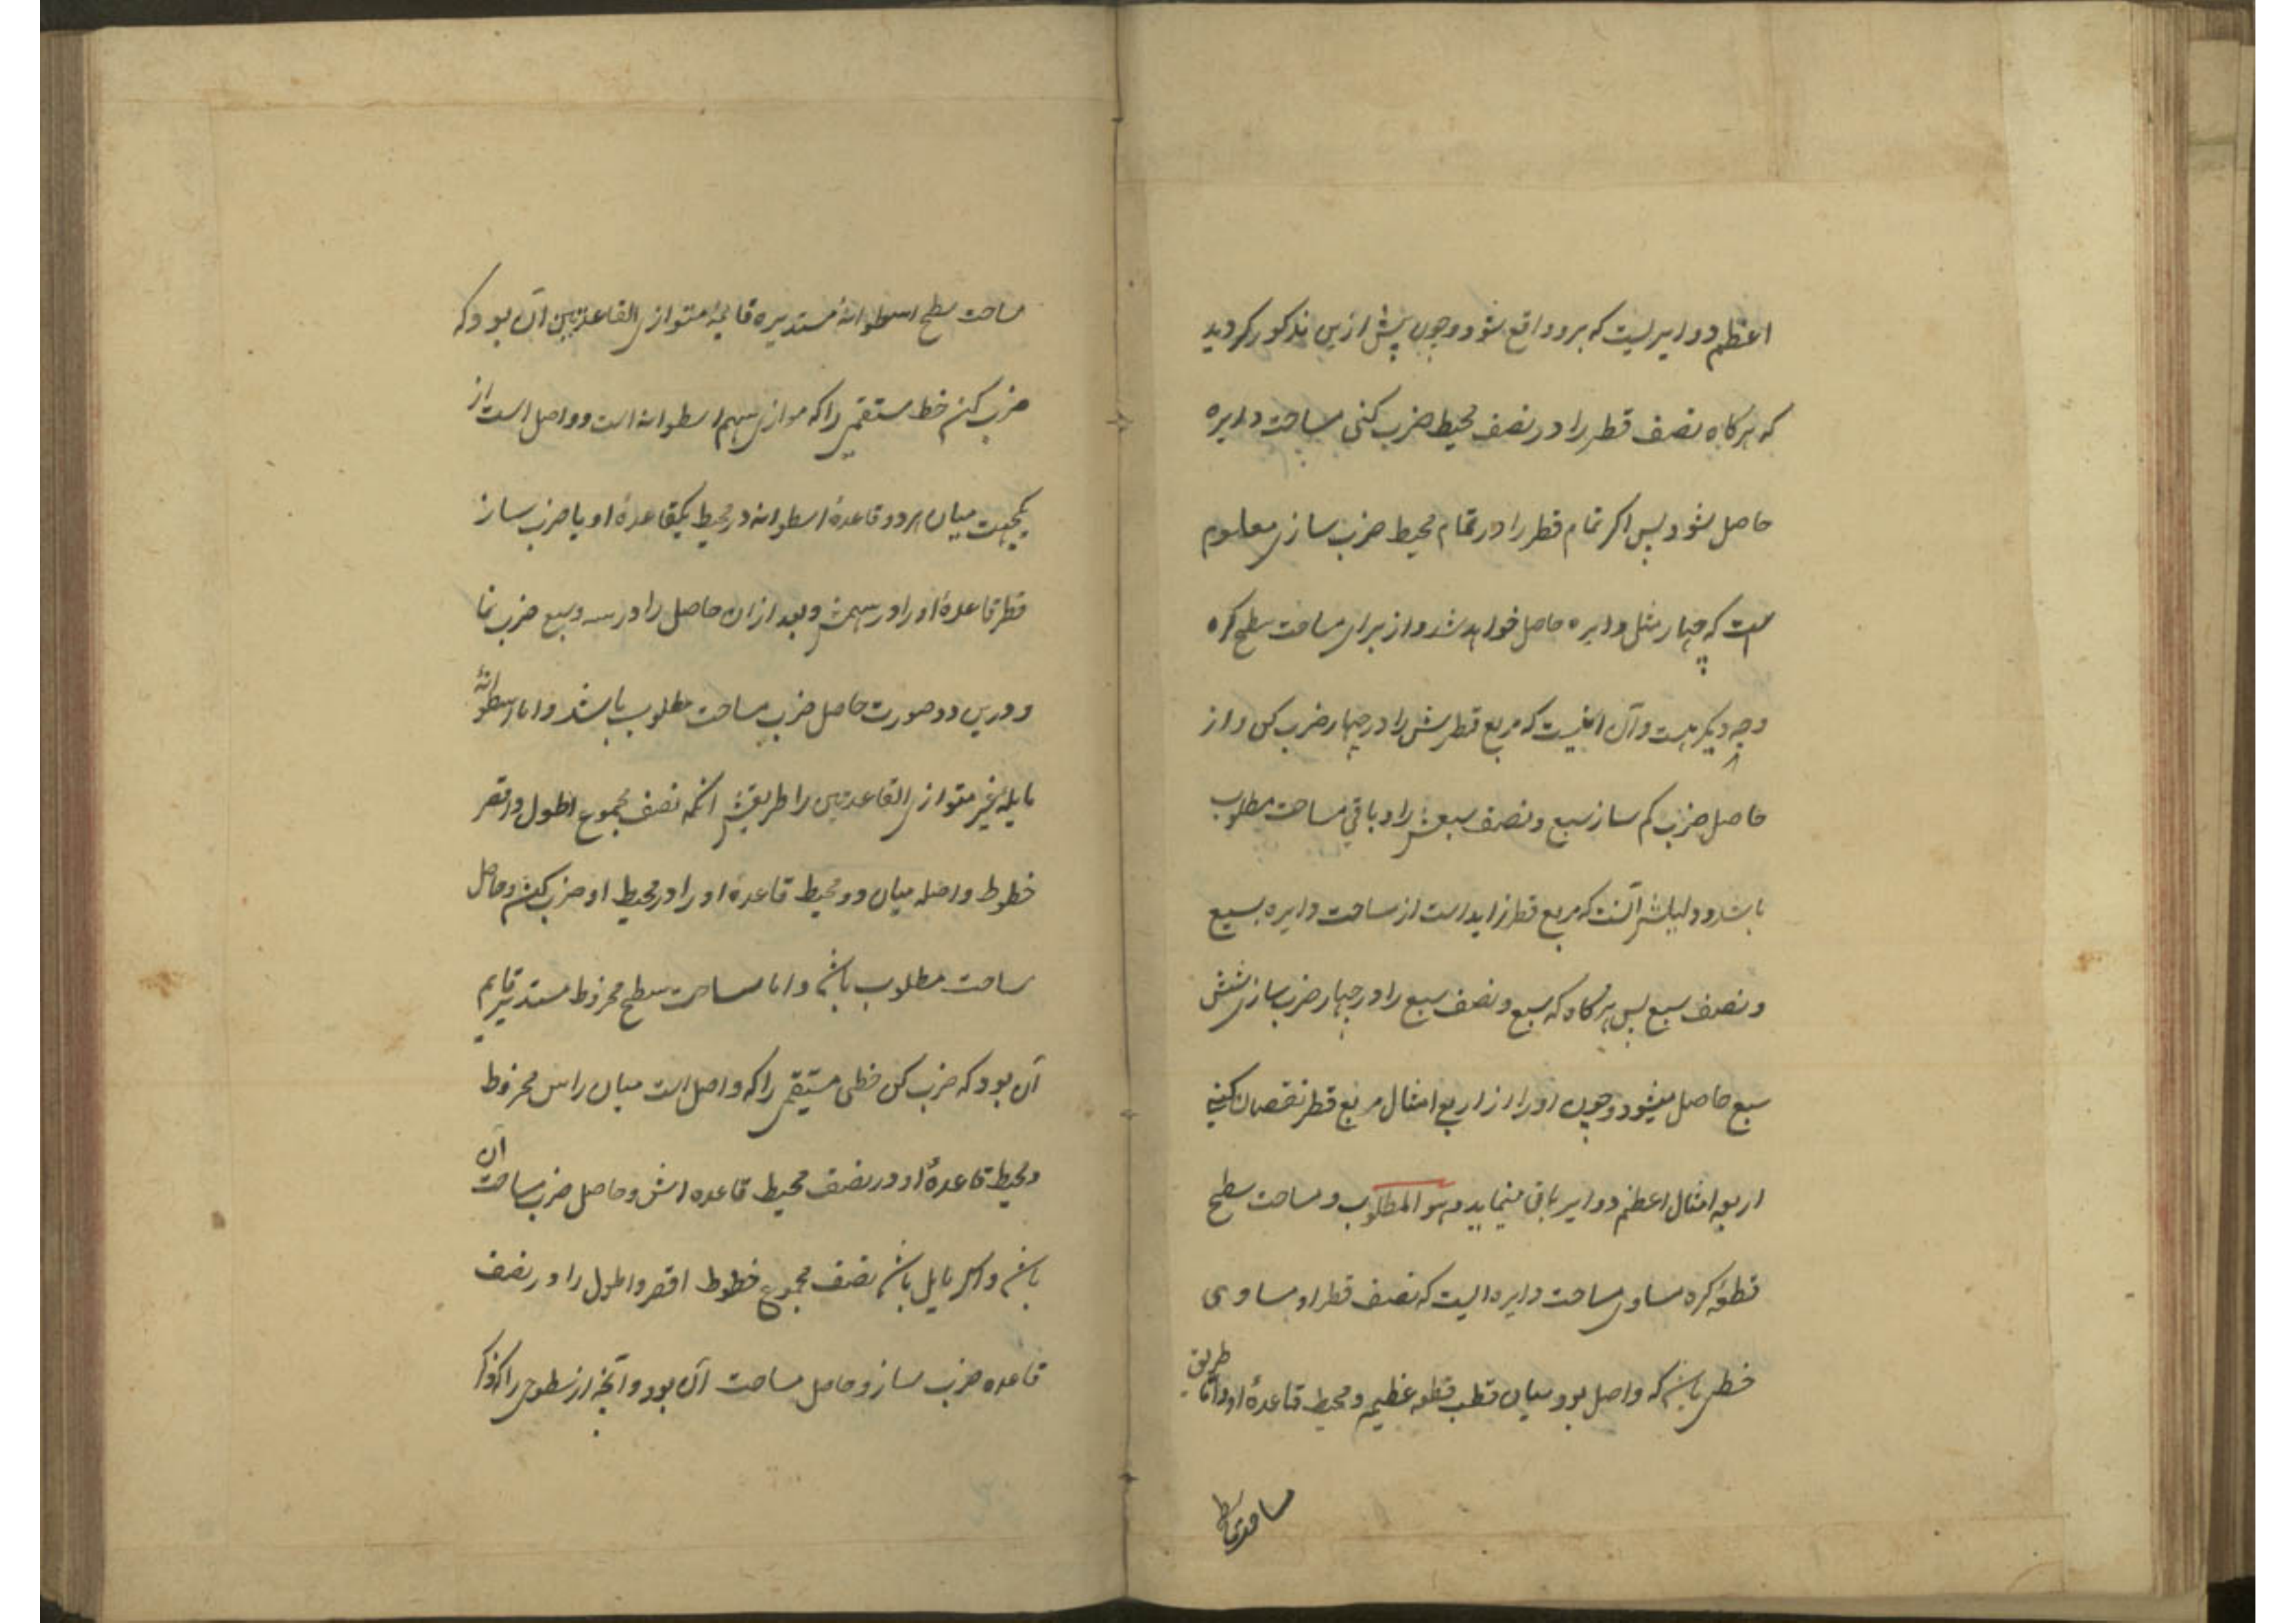 اعظم دوایریست که برو واقع شود و چون پیش ازین مذکور گردید
که هرگاه نصف قطر را در نصف محیط ضرب کنی مساحت دایره
حاصل شود پس اگر تمام قطر را در تمام محیط ضرب سازی معلوم
است که چهار مثل دایره حاصل خواهد شد و از برای مساحت سطح کره
وجه دیگر هست و آن اینست که مربع قطرش را در چهار ضرب کن و از
حاصل ضرب کم ساز سبع و نصف سبعش را و باقی مساحت مطلوب
باشد و دلیلش آنست که مربع قطر زاید است از مساحت دایره بسبع
و نصف سبع پس هرگاه که سبع و نصف سبع را در چهار ضرب سازی شش
سبع حاصل میشود و چون او را از اربع امثال مربع قطر نقصان کنی
اربعه امثال اعظم دوایر باقی مینماید و هو المطلوب و مساحت سطح
قطعهٔ کره مساوی مساحت دایره ایست که نصف قطر او مساوی
خطی باشد که واصل بود میان قطب قطعه عظیم و محیط قاعدهٔ او و اما طریق
مساحت سطح
مساحت سطح اسطوانهٔ مستدیره قایمهٔ متوازی القاعدتین آن بود که
ضرب کنی خط مستقیمی را که موازی سهم اسطوانه است و واصل است از
یکجهت میان هر دو قاعدهٔ اسطوانه در محیط یکقاعدهٔ او یا ضرب ساز
قطر قاعدهٔ او را در سهمش و بعد از ان حاصل را در سه و سبع ضرب نما
و درین دو صورت حاصل ضرب مساحت مطلوب باشد و اما اسطوانهٔ
مایلهٔ غیر متوازی القاعدتین را طریقش آنکه نصف مجموع اطول و اقصر
خطوط واصله میان دو محیط قاعدهٔ او را در محیط او ضرب کنی و حاصل
مساحت مطلوب باشد و اما مساحت سطح مخروط مستدیر قایم
آن بود که ضرب کن خطی مستقیمی را که واصل است میان راس مخروط
و محیط قاعدهٔ او در نصف محیط قاعده اش و حاصل ضرب مساحت آن
باشد و اگر مایل باشد نصف مجموع خطوط اقصر و اطول را در نصف
قاعده ضرب ساز و حاصل مساحت آن بود و آنچه از سطوح را که ذکر